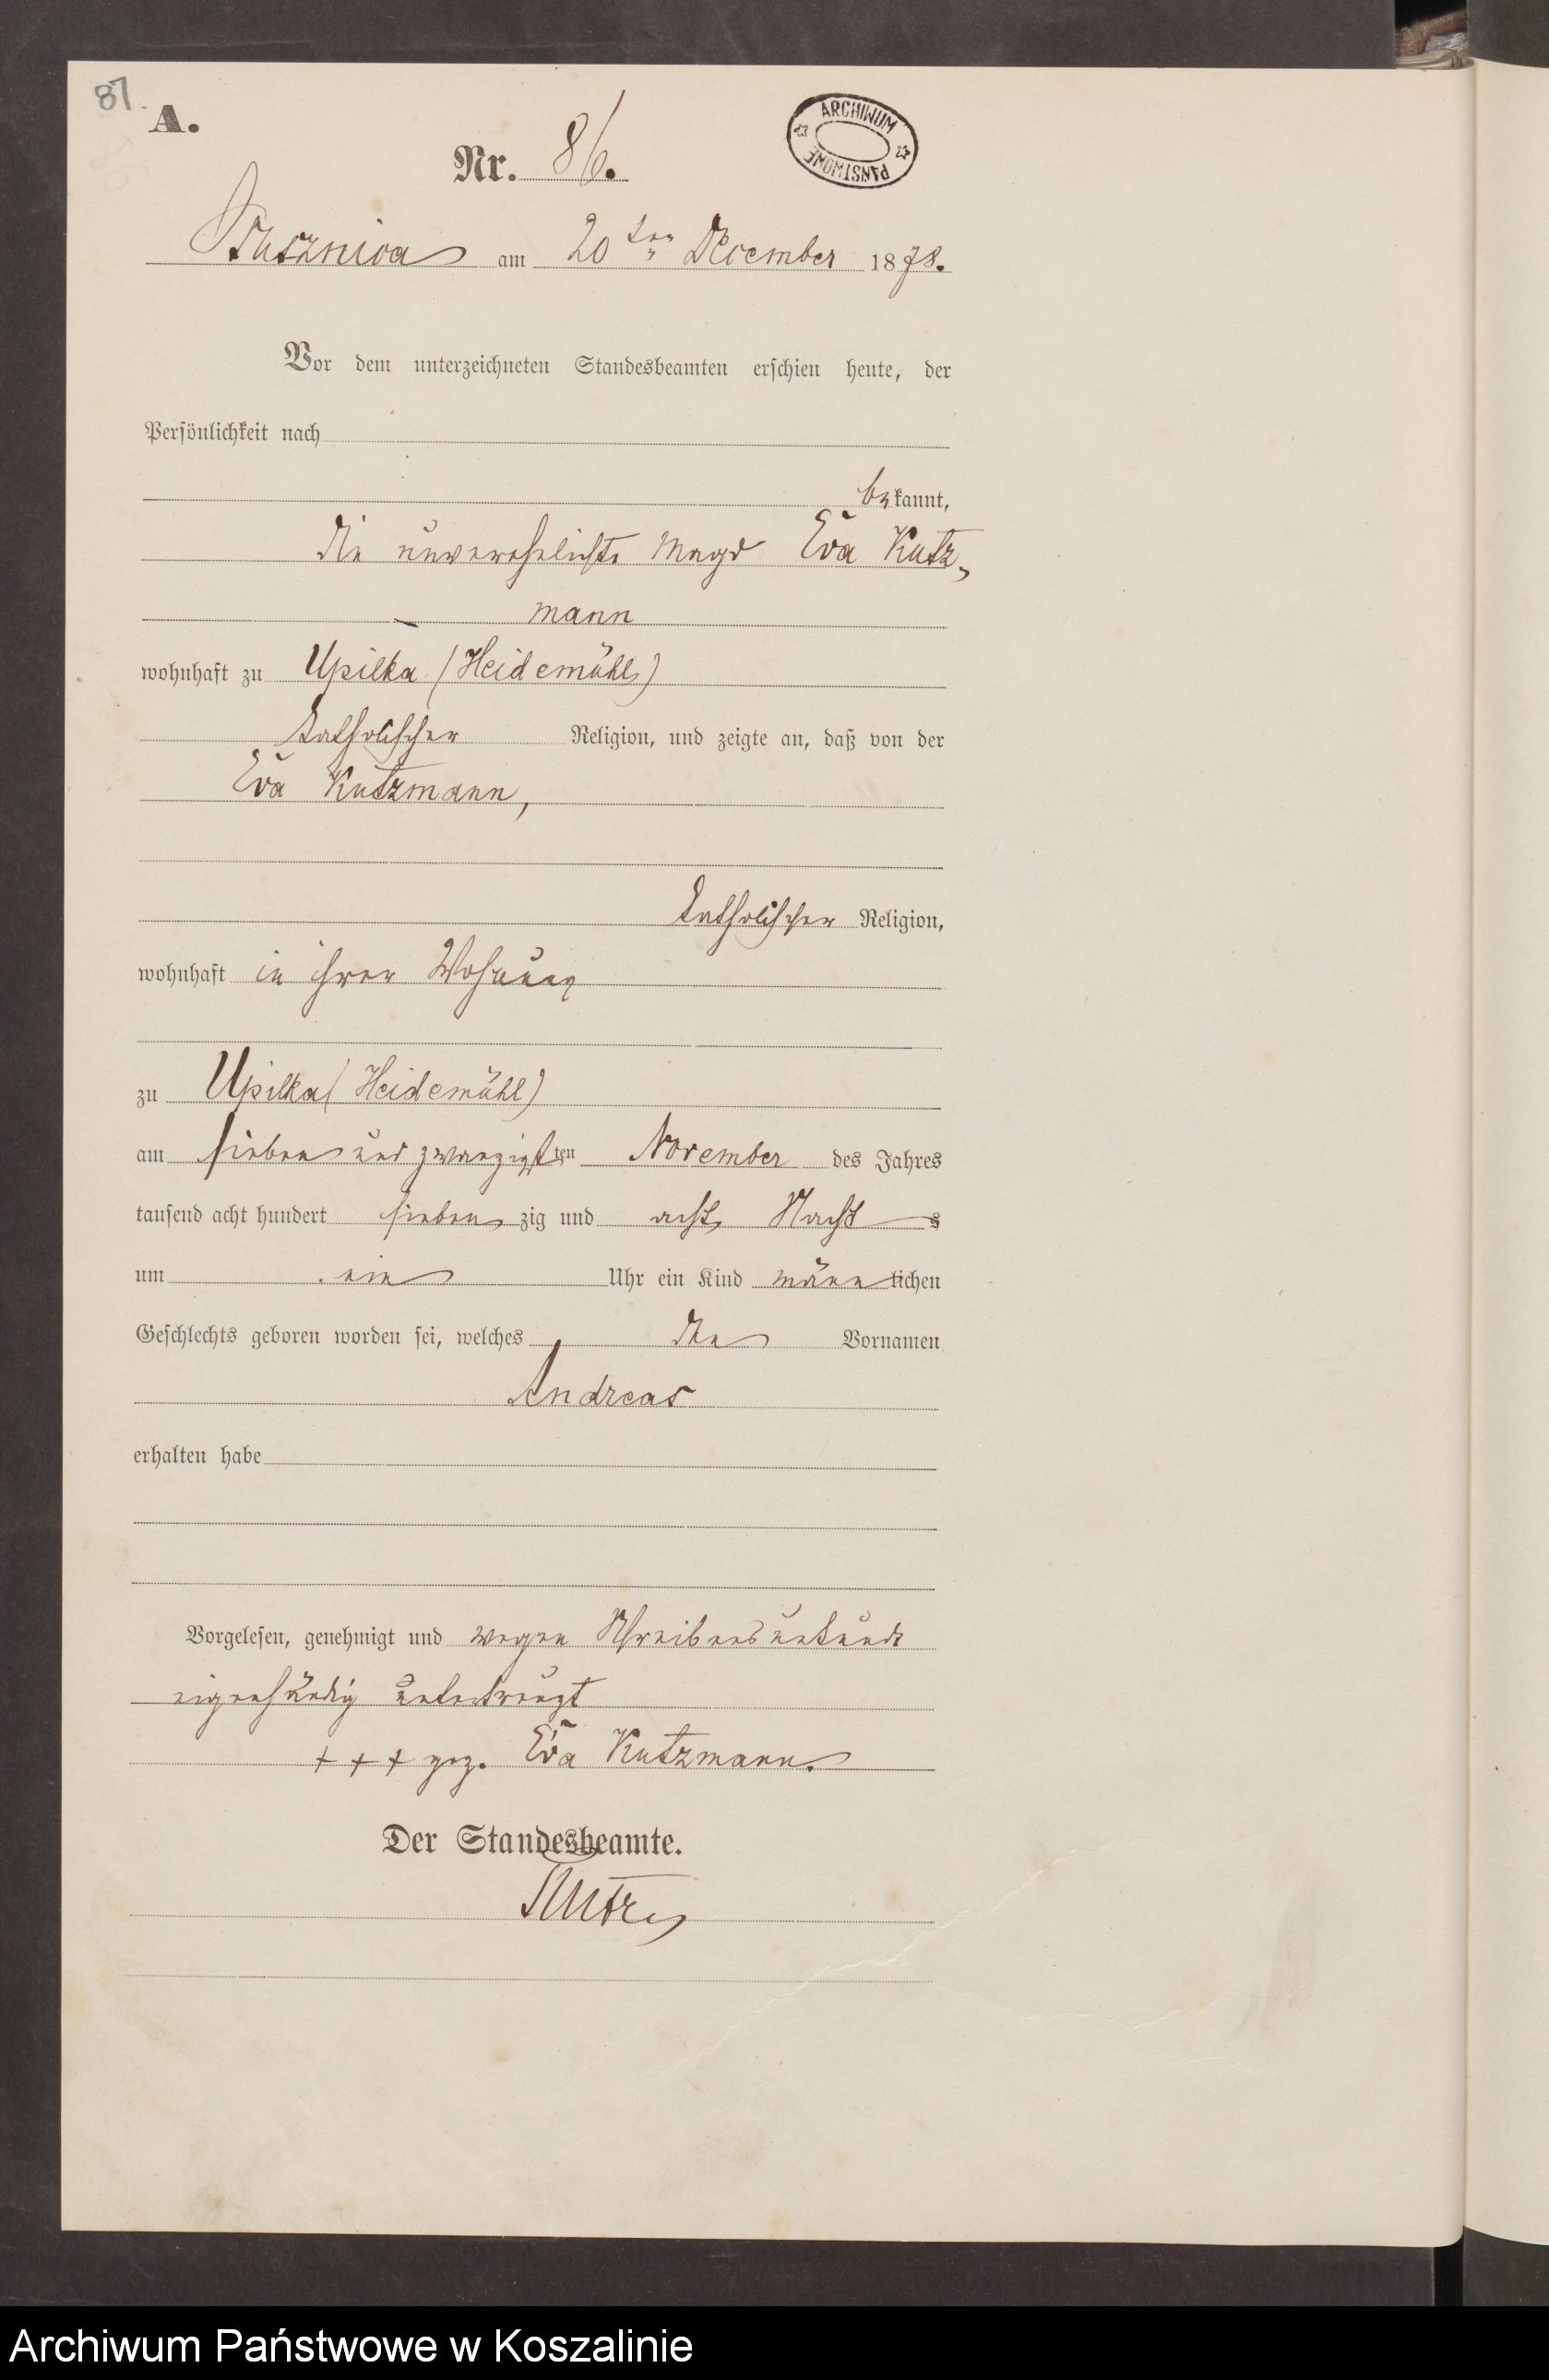 87.
A.
ARCHIWUM PAŃSTWOWE
Nr. 86.
am 20ten December 1878.
Vor dem unterzeichneten Standesbeamten erschien heute, der
Persönlichkeit nach
bekannt,
die unverehelichte Magd Eva Kutz-
mann
wohnhaft zu Upilka (Heidemühl)
katholischer Religion, und zeigte an, daß von der
Eva Kutzmann,
katholischer Religion,
wohnhaft in ihrer Wohnung
zu Upilka (Heidemühl)
am sieben und zwanzigsten November des Jahres
tausend acht hundert sieben zig und acht Nachts
um ein Uhr ein Kind männlichen
Geschlechts geboren worden sei, welches den Vornamen
Andreas
erhalten habe
Vorgelesen, genehmigt und wegen Schreibensunkunde
eigenhändig unterkreuzt
+ + + gez. Eva Kutzmann.
Der Standesbeamte.
Archiwum Państwowe w Koszalinie